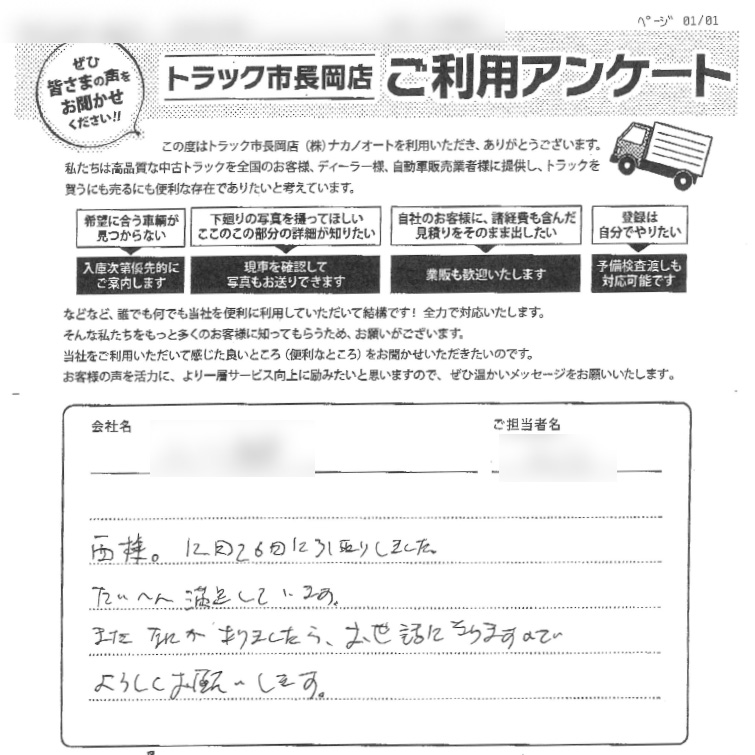 ページ 01/01
ぜひ
皆さまの声を
お聞かせ
ください!!
トラック市長岡店 ご利用アンケート
この度はトラック市長岡店（株）ナカノオートを利用いただき、ありがとうございます。
私たちは高品質な中古トラックを全国のお客様、ディーラー様、自動車販売業者様に提供し、トラックを
買うにも売るにも便利な存在でありたいと考えています。
希望に合う車輌が
見つからない
入庫次第優先的に
ご案内します
下廻りの写真を撮ってほしい
ここのこの部分の詳細が知りたい
現車を確認して
写真もお送りできます
自社のお客様に、諸経費も含んだ
見積りをそのまま出したい
業販も歓迎いたします
登録は
自分でやりたい
予備検査渡しも
対応可能です
などなど、誰でも何でも当社を便利に利用していただいて結構です！全力で対応いたします。
そんな私たちをもっと多くのお客様に知ってもらうため、お願いがございます。
当社をご利用いただいて感じた良いところ（便利なところ）をお聞かせいただきたいのです。
お客様の声を活力に、より一層サービス向上に励みたいと思いますので、ぜひ温かいメッセージをお願いいたします。
会社名
ご担当者名
様。12月26日に引取りしました。
たいへん満足しています。
また なにか ありましたら、お世話になりますので
よろしくお願いします。